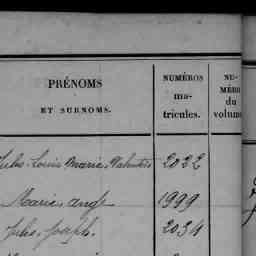 PRÉNOMS
ET SURNOMS.
NUMÉROS
ma-
tricules.
NU-
MÉRO
du
volume
Jules Louis Marie Valentin 2022
Marie, ange 1999
Jules, Joseph. 2034